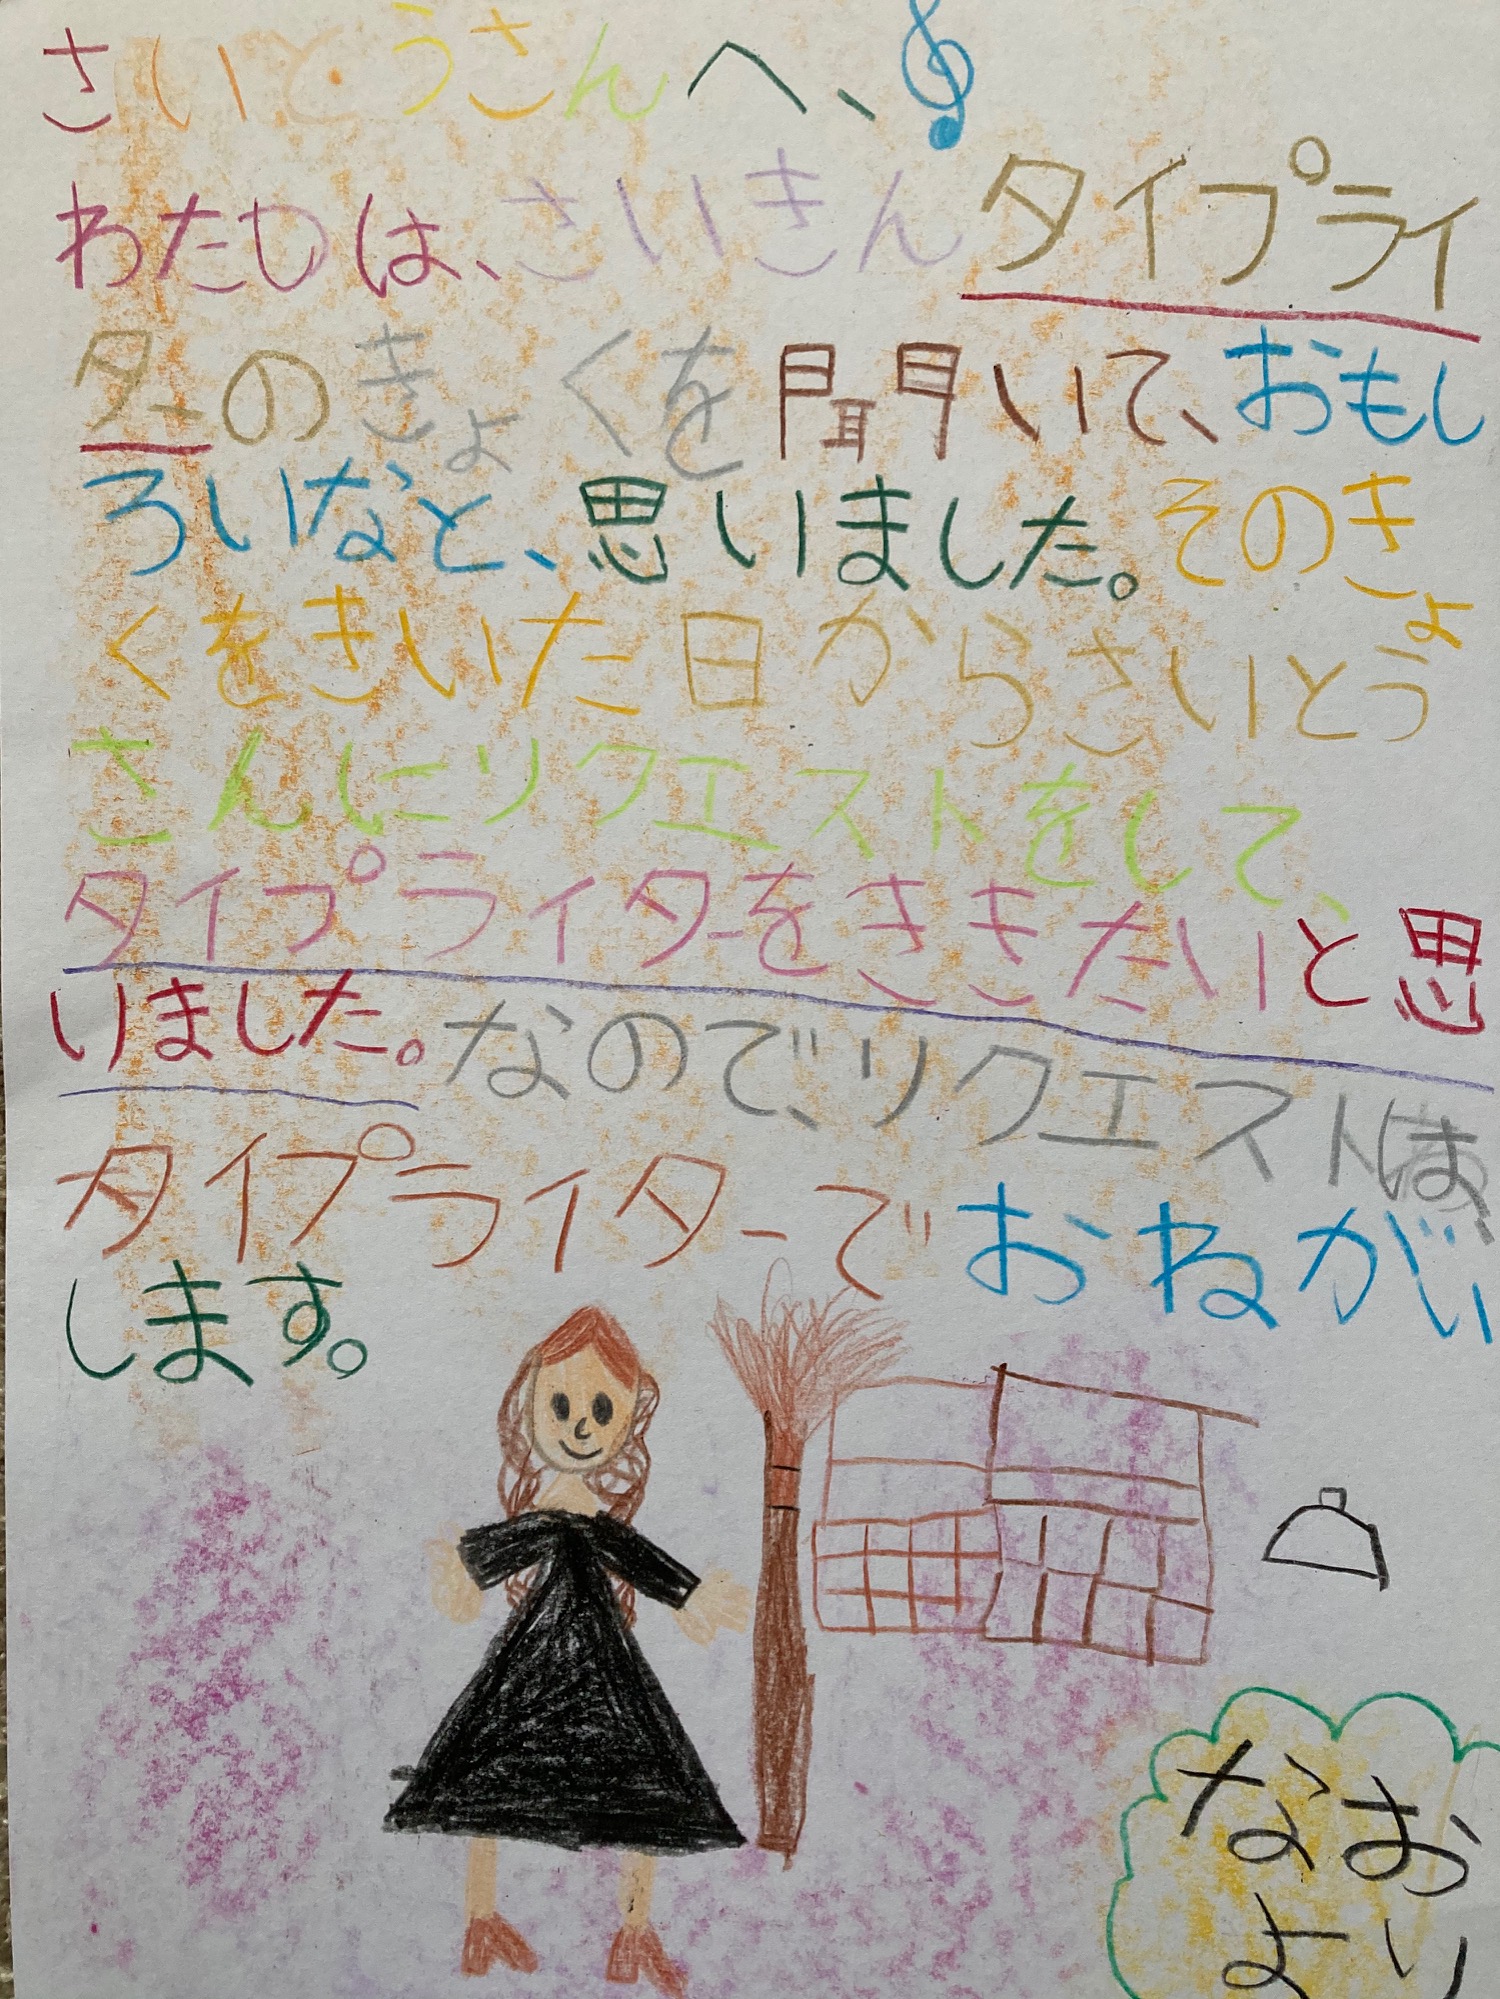 さいとうさんへ、
わたしは、さいきんタイプライ
ターのきょくを聞いて、おもし
ろいなと、思いました。そのきょ
くをきいた日からさいとう
さんにリクエストをして、
タイプライターをききたいと思
いました。なので、リクエストは、
タイプライターでおねがい
します。
なお
より